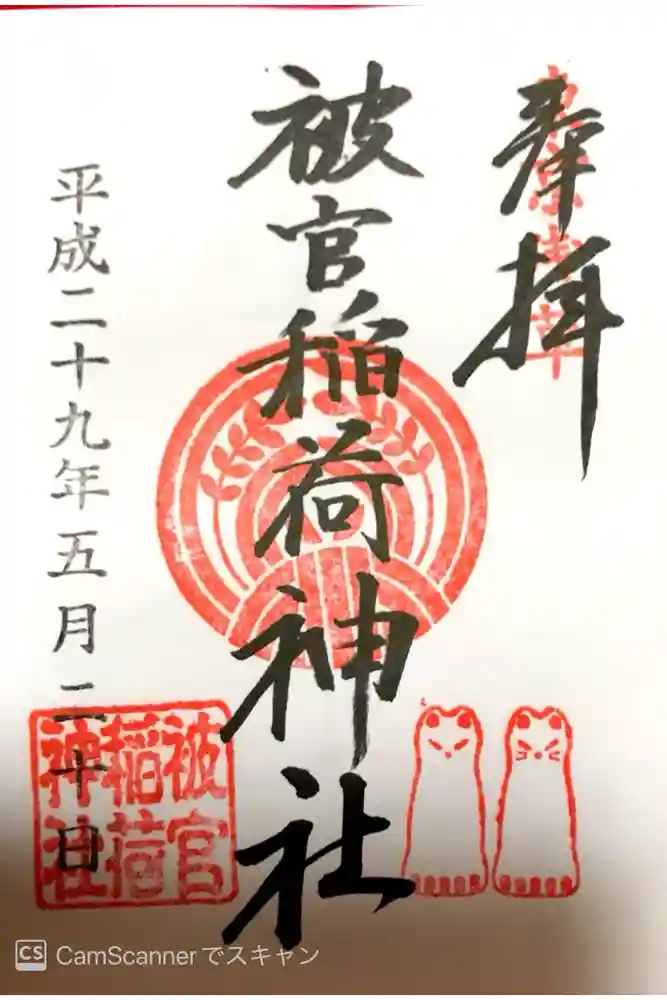 奉拝
東京浅草
被官稲荷神社
平成二十九年五月二十日
被官
稲荷
神社
CS CamScannerでスキャン